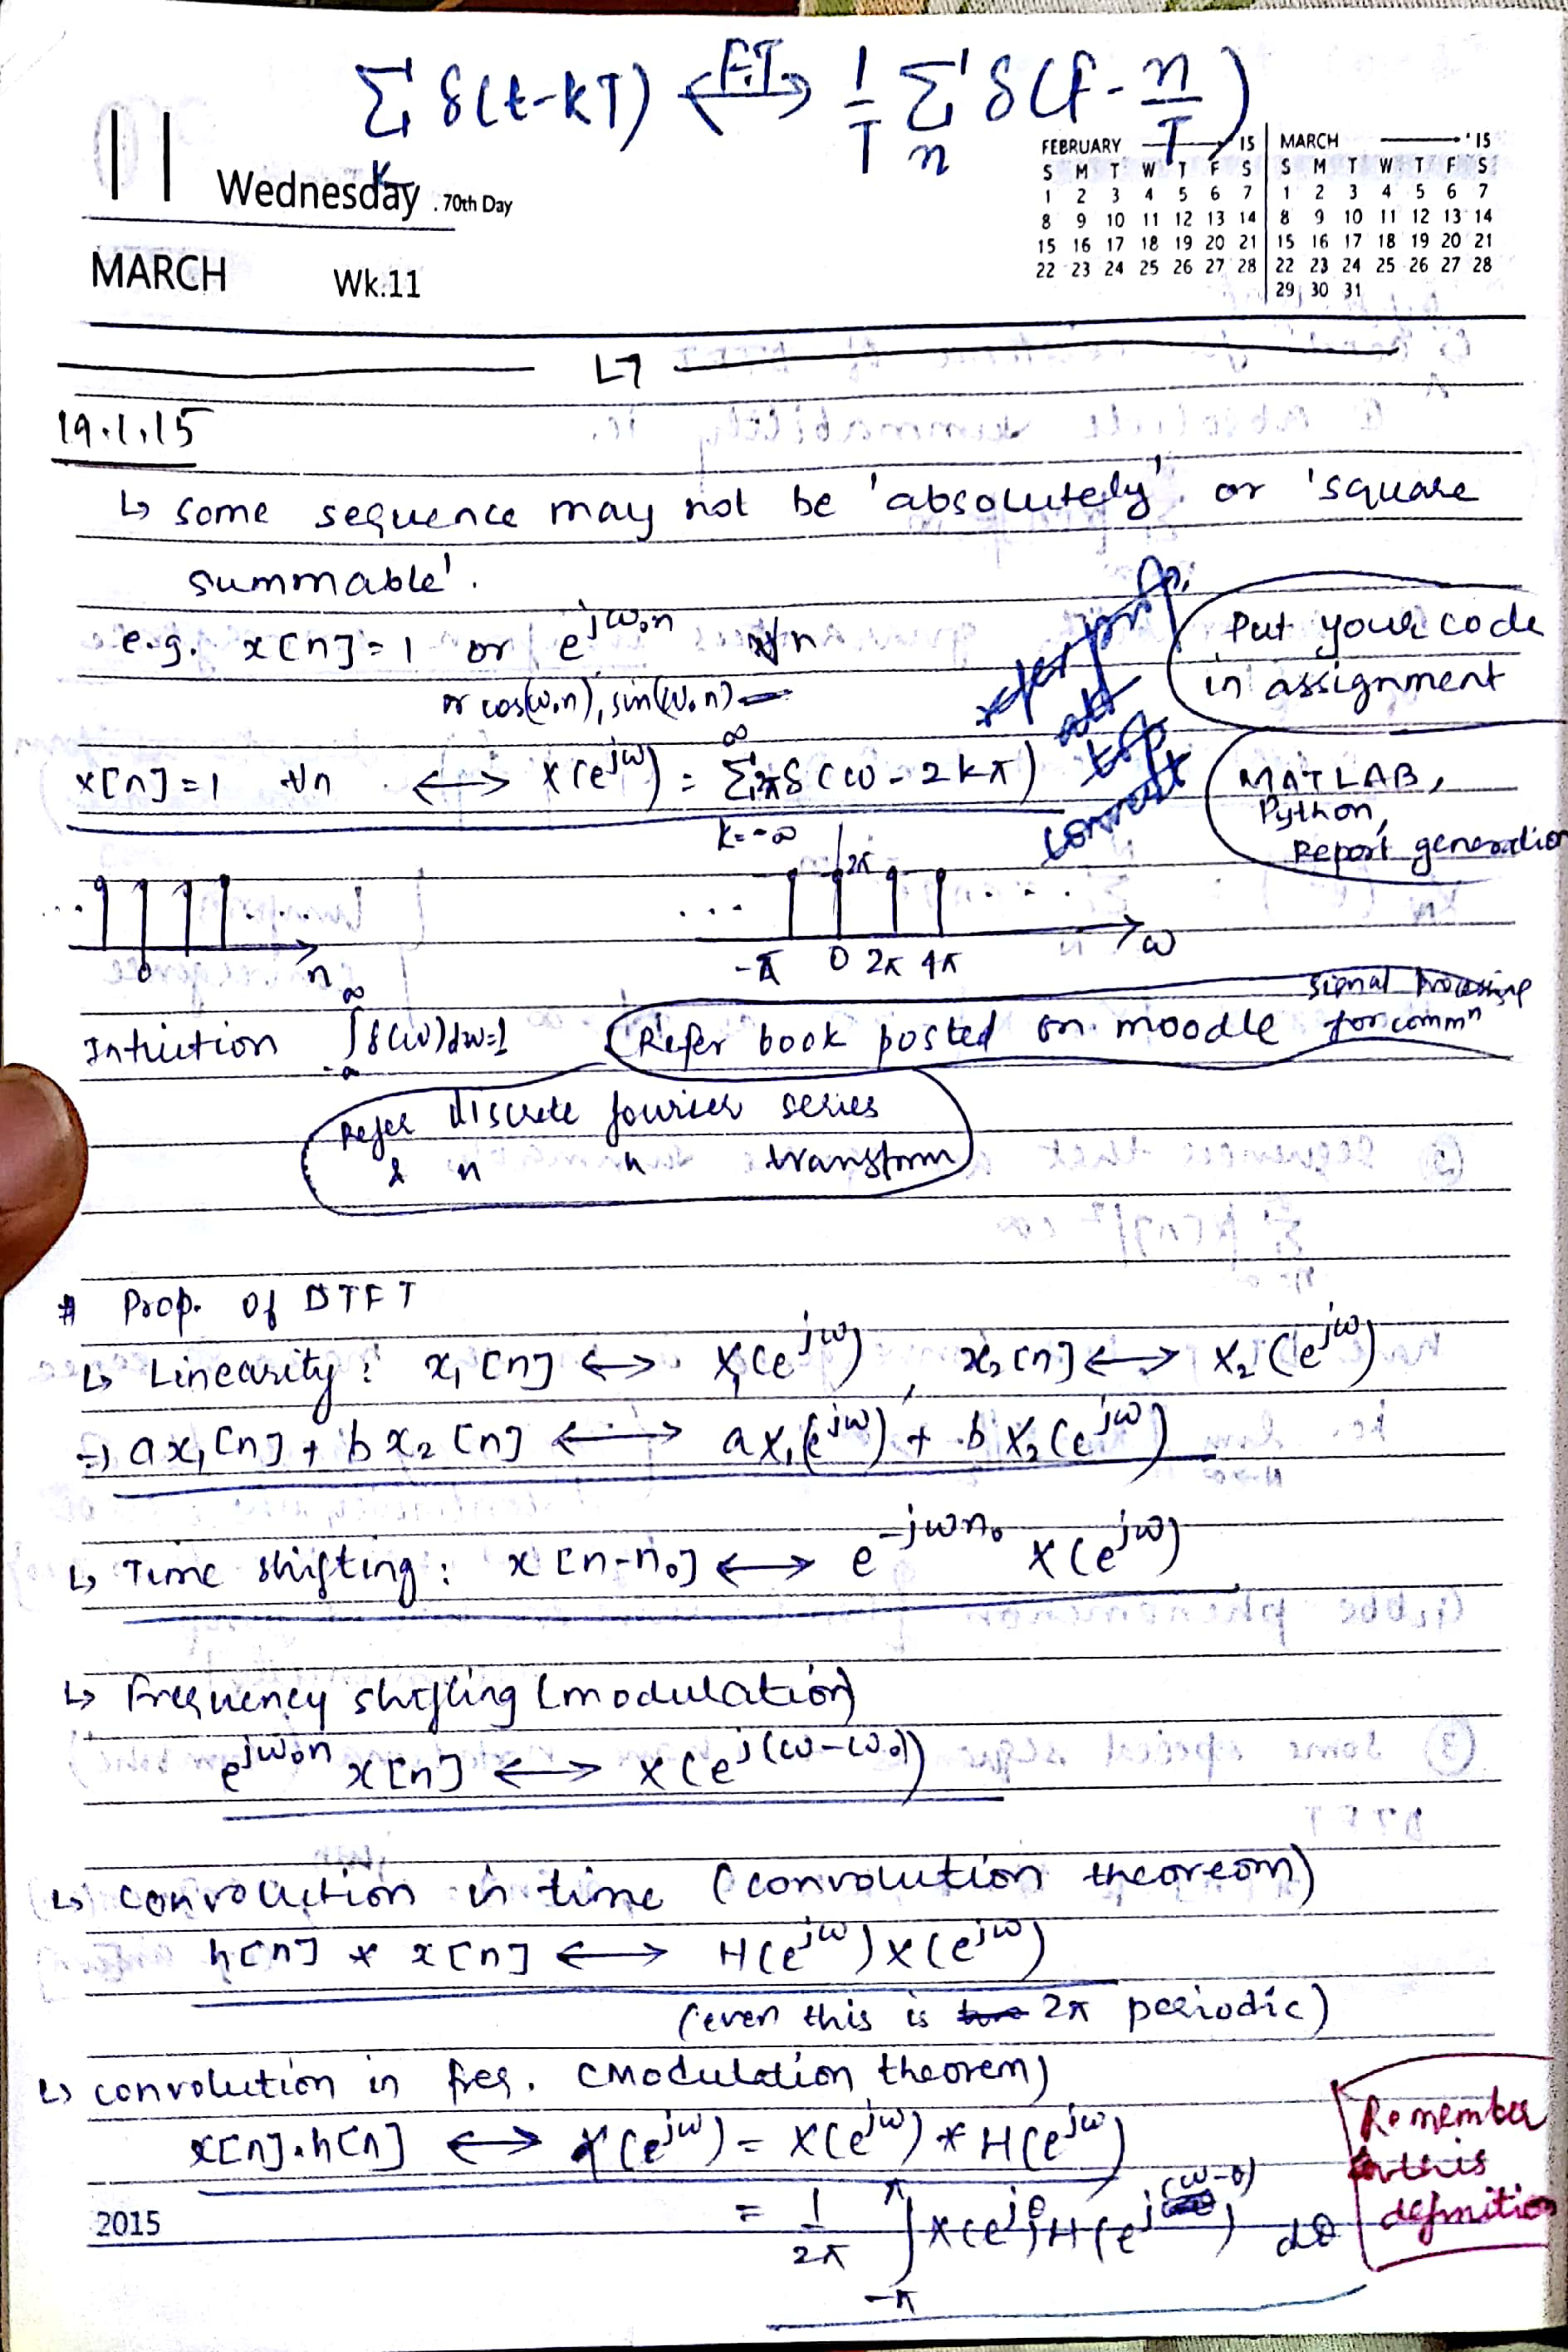 ∑ δ(t-kT) <-F.T.-> 1/T ∑ δ(f - n/T)
k n
11 Wednesday . 70th Day
MARCH Wk.11
FEBRUARY '15
S M T W T F S
1 2 3 4 5 6 7
8 9 10 11 12 13 14
15 16 17 18 19 20 21
22 23 24 25 26 27 28
MARCH '15
S M T W T F S
1 2 3 4 5 6 7
8 9 10 11 12 13 14
15 16 17 18 19 20 21
22 23 24 25 26 27 28
29 30 31
L7
19.1.15
↳ some sequence may not be 'absolutely' or 'square
summable'.
e.g. x[n]=1 or e^{jω₀n} ∀n
or cos(ω₀n), sin(ω₀n)
refer prof.
Put your code
in assignment
x[n]=1 ∀n <-> X(e^{jω}) = ∑_{k=-∞}^{∞} 2π δ(ω - 2kπ)
correct
MATLAB,
Python,
Report generation
... 0 ... n
... 2π ... -π 0 2π 4π ω
Intuition ∫_{-∞}^{∞} δ(ω)dω=1
Refer book posted on moodle
signal processing
for commⁿ
Refer discrete fourier series
& " " transform
# Prop. of DTFT
↳ Linearity: x₁[n] <-> X₁(e^{jω}), x₂[n] <-> X₂(e^{jω})
⇒ ax₁[n] + bx₂[n] <-> aX₁(e^{jω}) + bX₂(e^{jω})
↳ Time shifting: x[n-n₀] <-> e^{-jωn₀} X(e^{jω})
↳ Frequency shifting (modulation)
e^{jω₀n} x[n] <-> X(e^{j(ω-ω₀)})
↳ convolution in time (convolution theoreom)
h[n] * x[n] <-> H(e^{jω}) X(e^{jω})
(even this is 2π periodic)
↳ convolution in freq. (Modulation theorem)
x[n].h[n] <-> Y(e^{jω}) = X(e^{jω}) * H(e^{jω})
= 1/2π ∫_{-π}^{π} X(e^{jθ}) H(e^{j(ω-θ)}) dθ
Remember
this
definition
2015